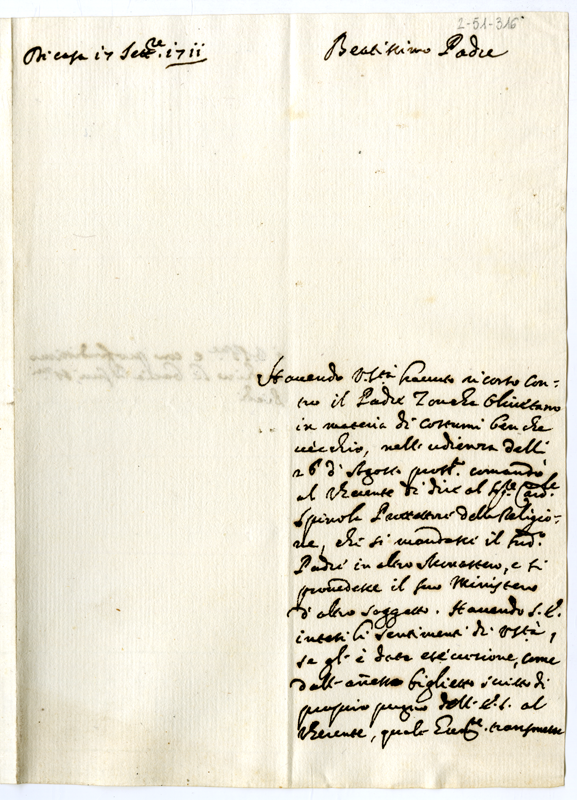 2-51-316
Di casa 17 Setre. 1711
Beatissimo Padre
Havendo V. Stà havuto ricorso con-
tro il Padre Olivetano
in materia di costumi ben che
vecchio, nell'udienza delli
26 d'Agosto prost. comandò
al Vicerente di dire al Sre. Cardle.
Spinola Protettore della Religio-
ne, che si mandasse il sud.
Padre in altro Monastero, e si
provedesse il suo Ministero
d'altro soggetto. Havendo S. E.
intesi li sentimenti di V. Stà,
se gl'è data esecuzione, come
dall'annesso biglietto scritto di
proprio pugno dell'E. S. al
Vicerente, quale trasmette